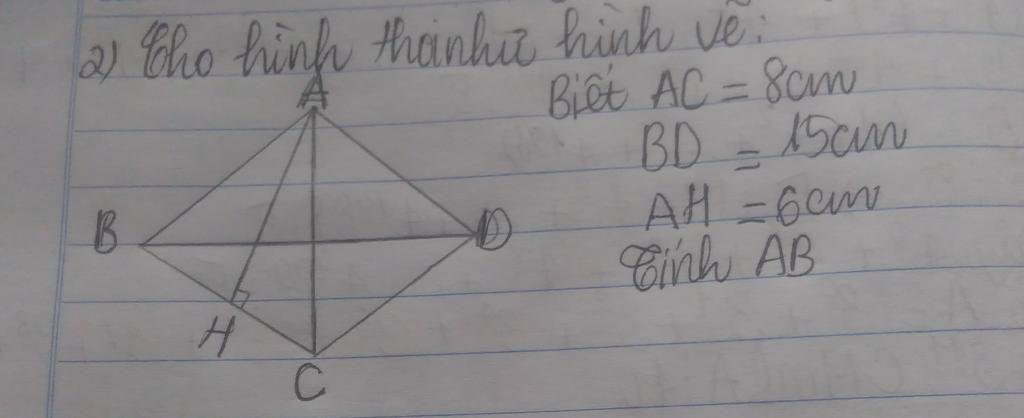 2) Cho hình thoi như hình vẽ:
A
Biết AC = 8cm
BD = 15cm
AH = 6cm
B
D
Tính AB
H
C